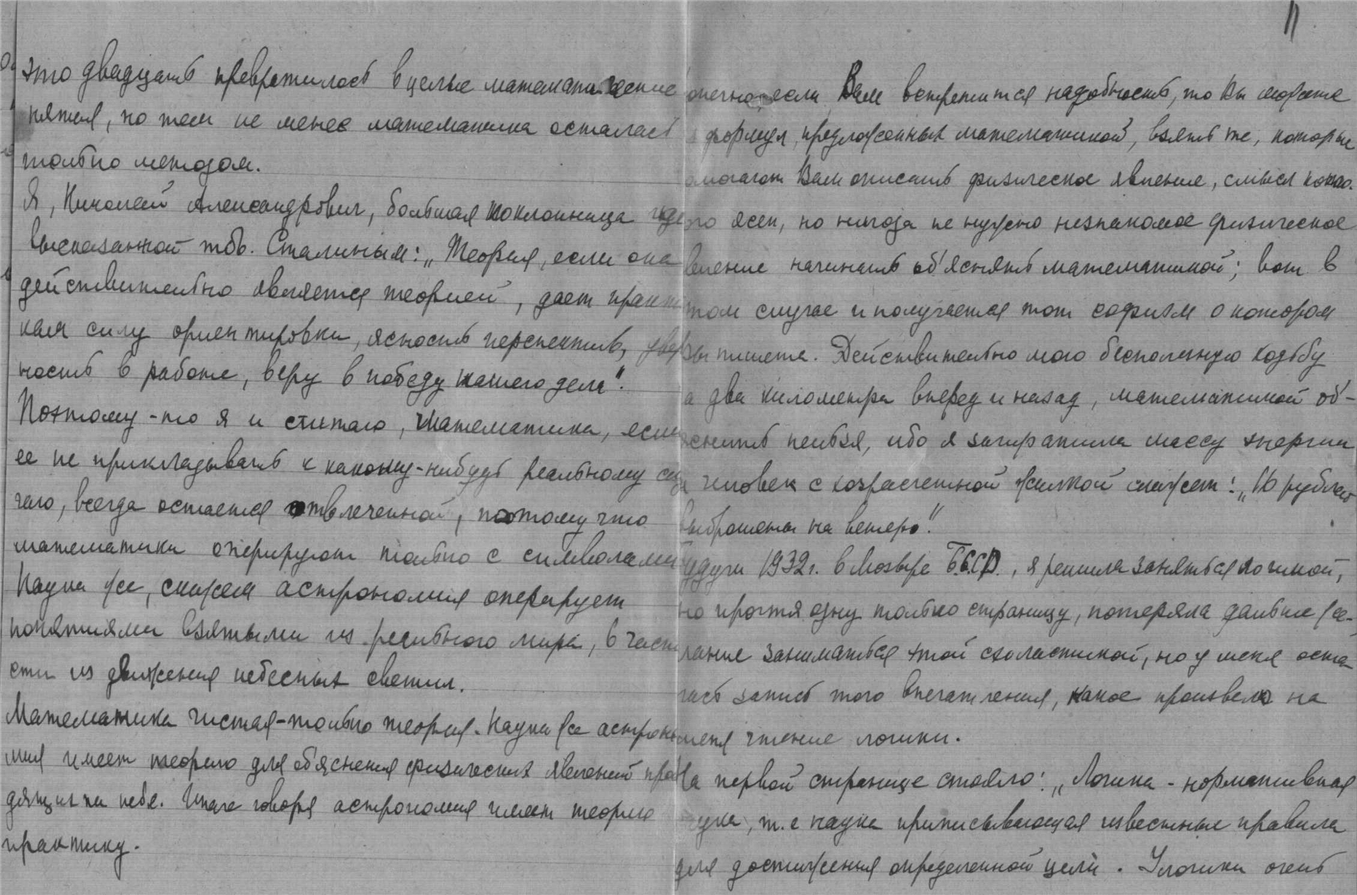 это двадцать превратилось в целые математические
нятия, но тем не менее математика осталась
только методом.
Я, Николай Александрович, большая поклонница
высказанной тов. Сталиным: „Теория, если она
действительно является теорией, дает практи
кам силу ориентировки, ясность перспектив, уве
ность в работе, веру в победу нашего дела".
Поэтому-то я и считаю, математика, если
ее не прикладывать к какому-нибудь реальному слу
чаю, всегда остается отвлеченной, потому что
математики оперируют только с символами
Наука же, скажем астрономия оперирует
понятиями взятыми из реального мира, в част
сти из движения небесных светил.
Математика чистая-только теория. Наука же астроно
мия имеет теорию для об'яснения физических явлений про
дящих на небе. Иначе говоря астрономия имеет теорию
практику.
11
онечно, если Вам встретится надобность, то Вы можете
з формул, предложенных математикой, взять те, которые
омогают Вам описать физическое явление, смысл
ого ясен, но никогда не нужно незнакомое физическое
вление начинать об'яснять математикой; вот в
том случае и получается тот софизм о котором
Вы пишете. Действительно мою бесполезную ходьбу
а два километра вперед и назад, математикой об'-
яснить нельзя, ибо я затратила массу энергии
а человек с хозрасчетной жилкой скажет: „10 рублей
выброшены на ветер".
Будучи 1932 г. в Мозыре Б.С.С.Р., я решила заняться логикой,
но прочтя одну только страницу, потеряла дальше же-
лание заниматься этой схоластикой, но у меня оста
лась запись того впечатления, какое произвело на
меня чтение логики.
На первой странице стояло: „Логика - нормативная
наука, т.е наука приписывающая известные правила
для достижения определенной цели. У логики очень